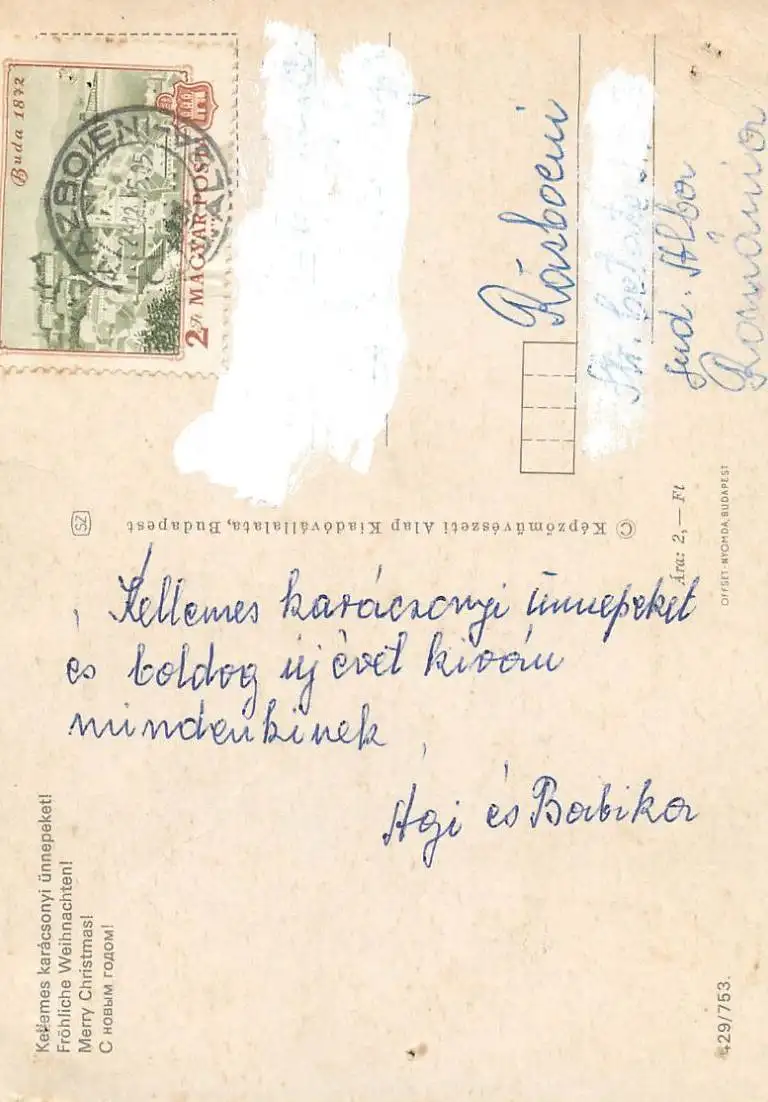 Buda 1872
2 Ft MAGYAR POSTA
AZBOIENI
Răsboeni
Str.
Jud. Alba
România
Ára: 2,— Ft
OFFSET-NYOMDA, BUDAPEST
© Képzőművészeti Alap Kiadóvállalata, Budapest
SZ
Kellemes karácsonyi ünnepeket
és boldog új évet kiván
mindenkinek
Ági és Babika
Kellemes karácsonyi ünnepeket!
Fröhliche Weihnachten!
Merry Christmas!
С новым годом!
429/753.